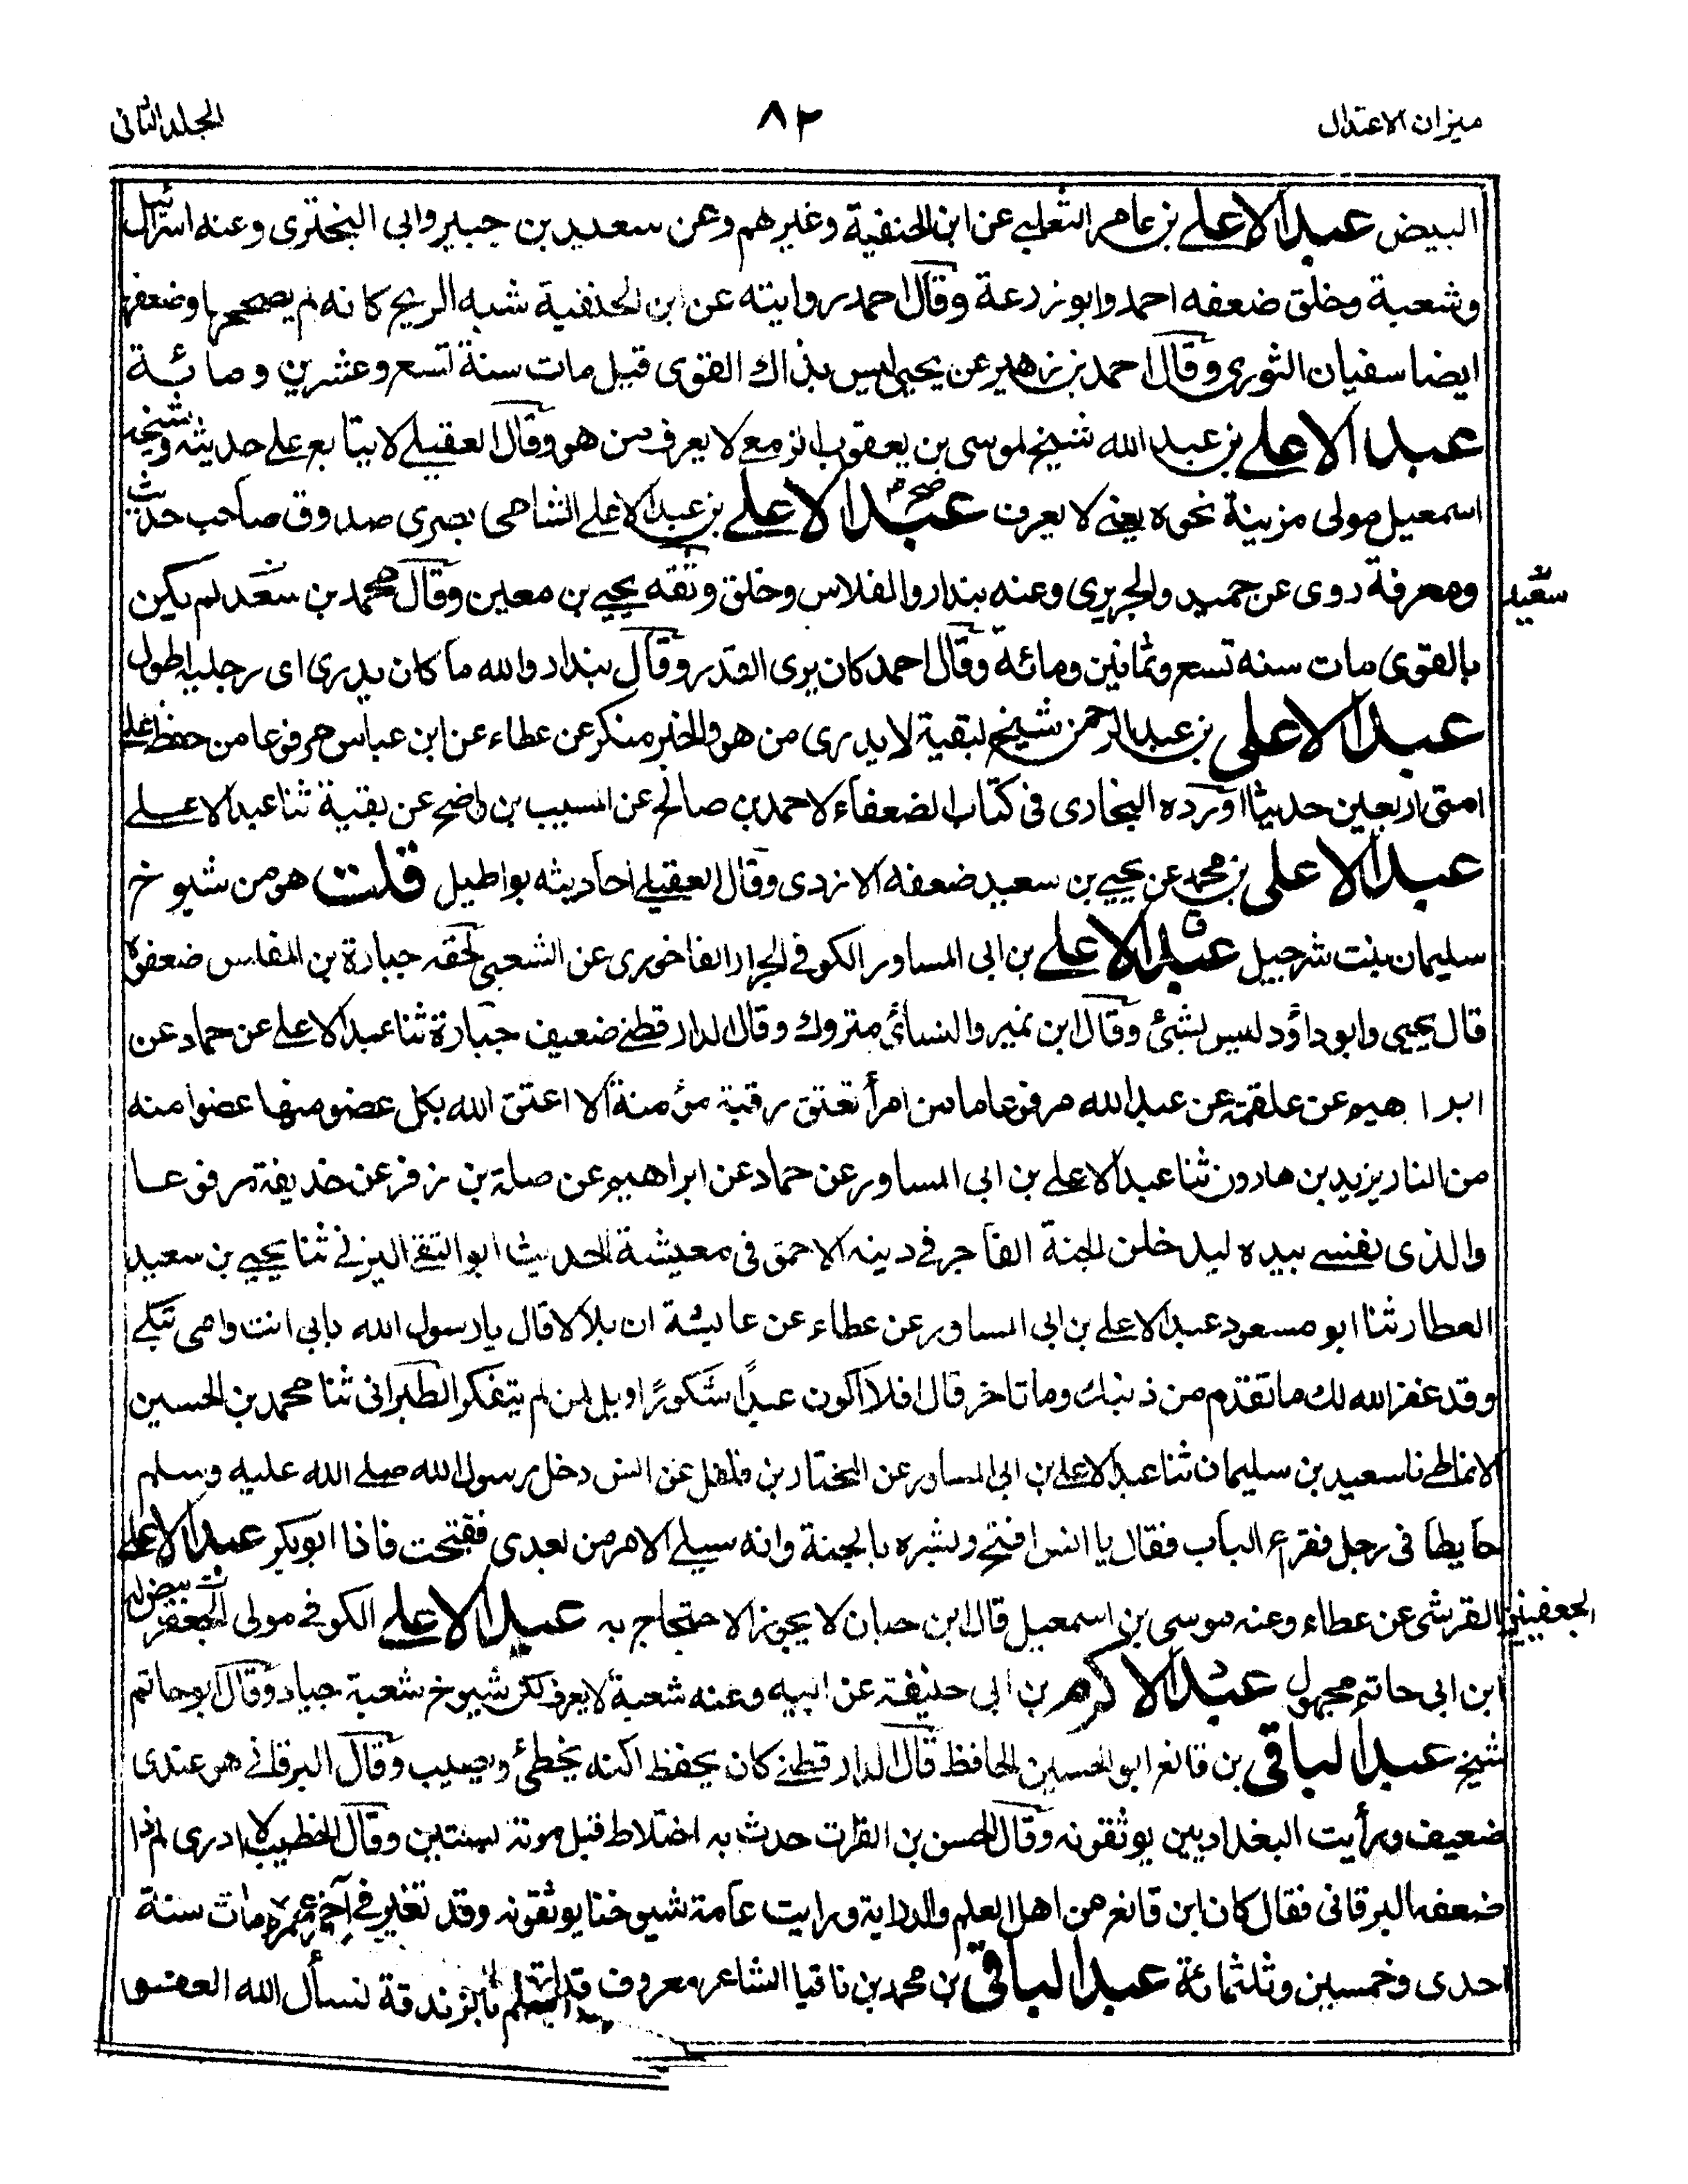 ميزان الاعتدال
٨٢
المجلد الثانى
البيض عبد الاعلے بن عامر الثعلبے عن ابن الحنفية وغيرهم وعن سعيد بن جبير وابى البخترى وعنه اسرائيل
وشعبة وخلق ضعفه احمد وابو زرعة وقال احمد روايته عن ابن الحنفية شبه الريح كانه لم يصححها وضعفها
ايضا سفيان الثورى وقال احمد بن زهير عن يحيى ليس بذاك القوى قيل مات سنة تسع وعشرين ومائة
عبد الاعلے بن عبد الله شيخ لموسى بن يعقوب الزمعے لا يعرف من هو وقال العقيلے لا يتابع علے حديثه وشيخه
اسمعيل مولى مزينة نحوه يعنے لا يعرف صح عبد الاعلے بن عبد الاعلے الشامى بصرى صدوق صاحب حديث
ومعرفة روى عن حميد والجريرى وعنه بندار والفلاس وخلق وثقه يحيے بن معين وقال محمد بن سعد لم يكن
سعيد
بالقوى مات سنه تسع وثمانين ومائة وقال احمد كان يرى القدر وقال بندار والله ما كان يدرى اى رجليه اطول
عبد الاعلى بن عبد الرحمن شيخ لبقية لا يدرى من هو والخبر منكر عن عطاء عن ابن عباس مرفوعا من حفظ علے
امتى اربعين حديثا اورده البخارى فى كتاب الضعفاء لاحمد بن صالح عن المسيب بن واضح عن بقية ثنا عبد الاعلے
عبد الاعلى بن محمد عن يحيے بن سعيد ضعفه الازدى وقال العقيلے احاديثه بواطيل قلت هو من شيوخ
سليمان بنت شرحبيل ق عبد الاعلے بن ابى المساور الكوفے الجرار الفاخورى عن الشعبى لحقه جبارة بن المغلس ضعفوه
قال يحيى وابو داؤد ليس بشئ وقال ابن نمير والنسائى متروك وقال الدارقطنے ضعيف جبارة ثنا عبد الاعلے عن حماد عن
ابراهيم عن علقمة عن عبد الله مرفوعا ما من امرأ تعتق رقبة مؤمنة الا اعتق الله بكل عضو منها عضوا منه
من النار يزيد بن هارون ثنا عبد الاعلے بن ابى المساور عن حماد عن ابراهيم عن صلة بن زفر عن حذيفة مرفوعا
والذى نفسے بيده ليدخلن الجنة الفاجر فے دينه الاحمق فى معيشة الحديث ابو التقے اليزنے ثنا يحيے بن سعيد
العطار ثنا ابو مسعود عبد الاعلے بن ابى المساور عن عطاء عن عايشة ان بلالا قال يا رسول الله بابى انت وامى تبكے
وقد غفر الله لك ما تقدم من ذنبك وما تاخر قال افلا اكون عبدًا شكورًا ويل لمن لم يتفكر الطبرانى ثنا محمد بن الحسين
الانماطے نا سعيد بن سليمان ثنا عبد الاعلے بن ابى المساور عن المختار بن فلفل عن انس دخل رسول الله صلے الله عليه وسلم
حايطا فى رجل فقرع الباب فقال يا انس افتح وبشره بالجنة وانه سيلے الامر من بعدى ففتحت فاذا ابو بكر عبد الاعلے
القرشى عن عطاء وعنه موسى بن اسمعيل قال ابن حبان لا يجوز الاحتجاج به عبد الاعلے الكوفے مولى الجعفر بيض له
الجعفيين
ابن ابى حاتم مجهول عبد الاكرم بن ابى حنيفة عن ابيه وعنه شعبة لا يعرف لكن شيوخ شعبة جياد وقال ابو حاتم
شيخ عبد الباقى بن قانع ابو الحسين الحافظ قال الدارقطنے كان يحفظ لكنه يخطئ ويصيب وقال البرقانے هو عندى
ضعيف ورأيت البغداديين يوثقونه وقال الحسن بن الفرات حدث به اختلاط قبل موته بسنتين وقال الخطيب لا ادرى لم ذا
ضعفه البرقانى فقال كان ابن قانع من اهل العلم والدراية ورايت عامة شيوخنا يوثقونه وقد تغير فے آخر عمره مات سنة
احدى وخمسين وثلثمائة عبد الباقى بن محمد بن ناقيا الشاعر معروف بالزندقة نسأل الله العفو